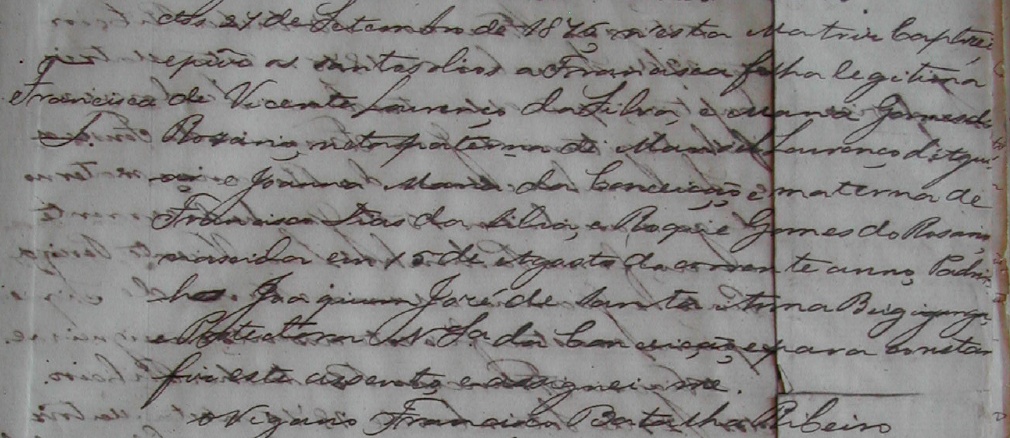 Aos 27 de Setembro de 1876 n'esta Matriz baptizei
e puz os santos olios a Francisca filha legitima
Francisca de Vicente Lourenço da Silva, e Maria Gomes do
Rosario, neta paterna de Manoel Lourenço
e Joanna Maria da Conceição e materna de
Francisca Dias da Silva, e Roque Gomes do Rosario
nascida em 15 de Agosto do corrente anno, Padri-
nho Joaquim José de Santa Anna
e Protectora N. Sra da Conceição, e para constar
fiz este assento, e assignei-me.
O Vigario Francisco Batalha Ribeiro